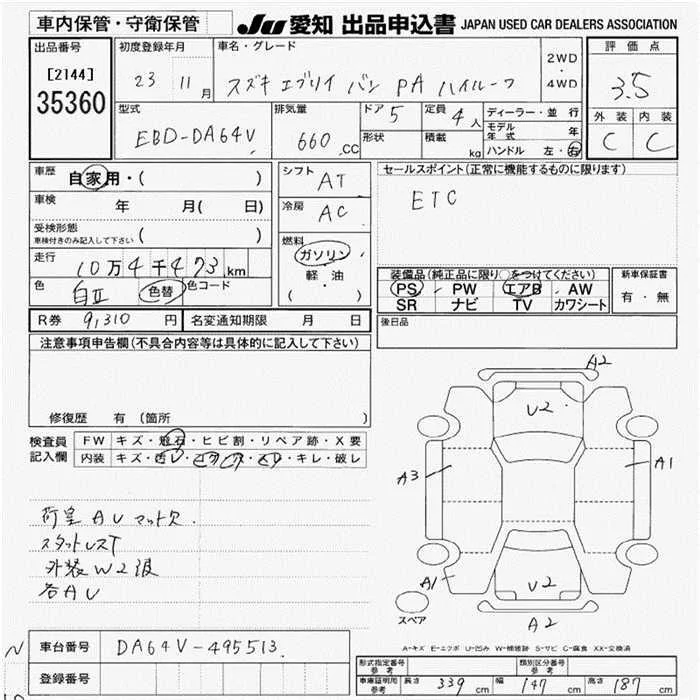 車内保管・守衛保管 JU 愛知 出品申込書 JAPAN USED CAR DEALERS ASSOCIATION
出品番号 初度登録年月 車名・グレード 評価点
[2144] 23 11月 スズキ エブリイ バン PA ハイルーフ 2WD・4WD 3.5
35360
型式 排気量 ドア 5 定員 4人 ディーラー・並行 外装 内装
EBD-DA64V 660.CC 形状 積載 kg モデル年式 年 C C
ハンドル 左・右
車歴 自家用・( ) シフト AT セールスポイント(正常に機能するものに限ります)
車検 年 月( 日) 冷房 AC ETC
受検形態 ( )
車検付きのみ記入して下さい
燃料
走行 10万4千473km ガソリン
軽・油
( )
装備品(純正品に限り○をつけてください) 新車保証書
色 白Ⅱ 色替 色コード PS PW エアB AW 有・無
SR ナビ TV カワシート
R券 9,310円 名変通知期限 月 日 後日品
注意事項申告欄(不具合内容等は具体的に記入して下さい)
修復歴 有 (箇所 )
検査員記入欄 FW キズ・飛石・ヒビ割・リペア跡・X要
内装 キズ・汚レ・コゲ・スレ・キレ・破レ
A2
U2
A3
A1
A1
U2
A2
スペア
荷室AUマット欠
スタットレスT
外装W2
各AU
A-キズ E-エクボ U-凹み W-補修跡 S-サビ C-腐食 XX-交換済
N 車台番号 DA64V-495513.
登録番号
型式指定番号 参考 類別区分番号 参考
車庫証明用 参考 長さ 339cm 幅 147cm 高さ 187cm